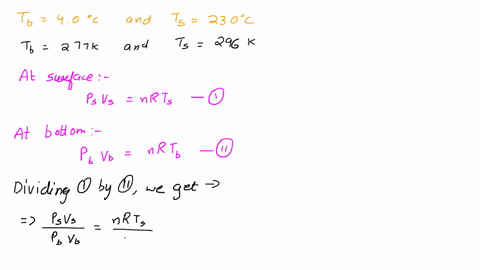 T_b = 4.0 °C and T_s = 23.0 °C
T_b = 277K and T_s = 296 K
At surface:-
P_s V_s = nRT_s — Ⓘ
At bottom:-
P_b V_b = nRT_b — Ⓘⓘ
Dividing Ⓘ by Ⓘⓘ, we get →
=> P_s V_s / P_b V_b = nRT_s /